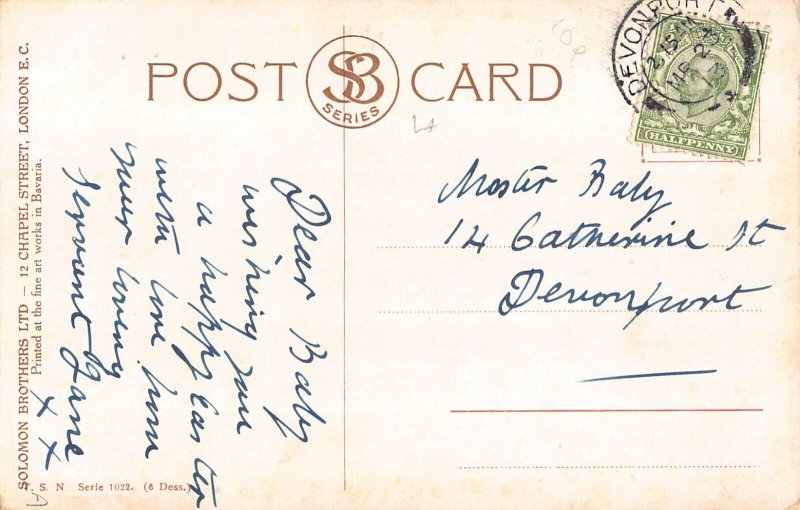 POST CARD
SB
SERIES
DEVONPORT
HALFPENNY
Dear Baby
wishing you
a happy Easter
with love from
your loving
servent Jane
x x
Master Baby
14 Catherine St
Devonport
SOLOMON BROTHERS LTD — 12 CHAPEL STREET, LONDON E.C.
Printed at the fine art works in Bavaria.
T. S. N Serie 1022. (6 Dess.)